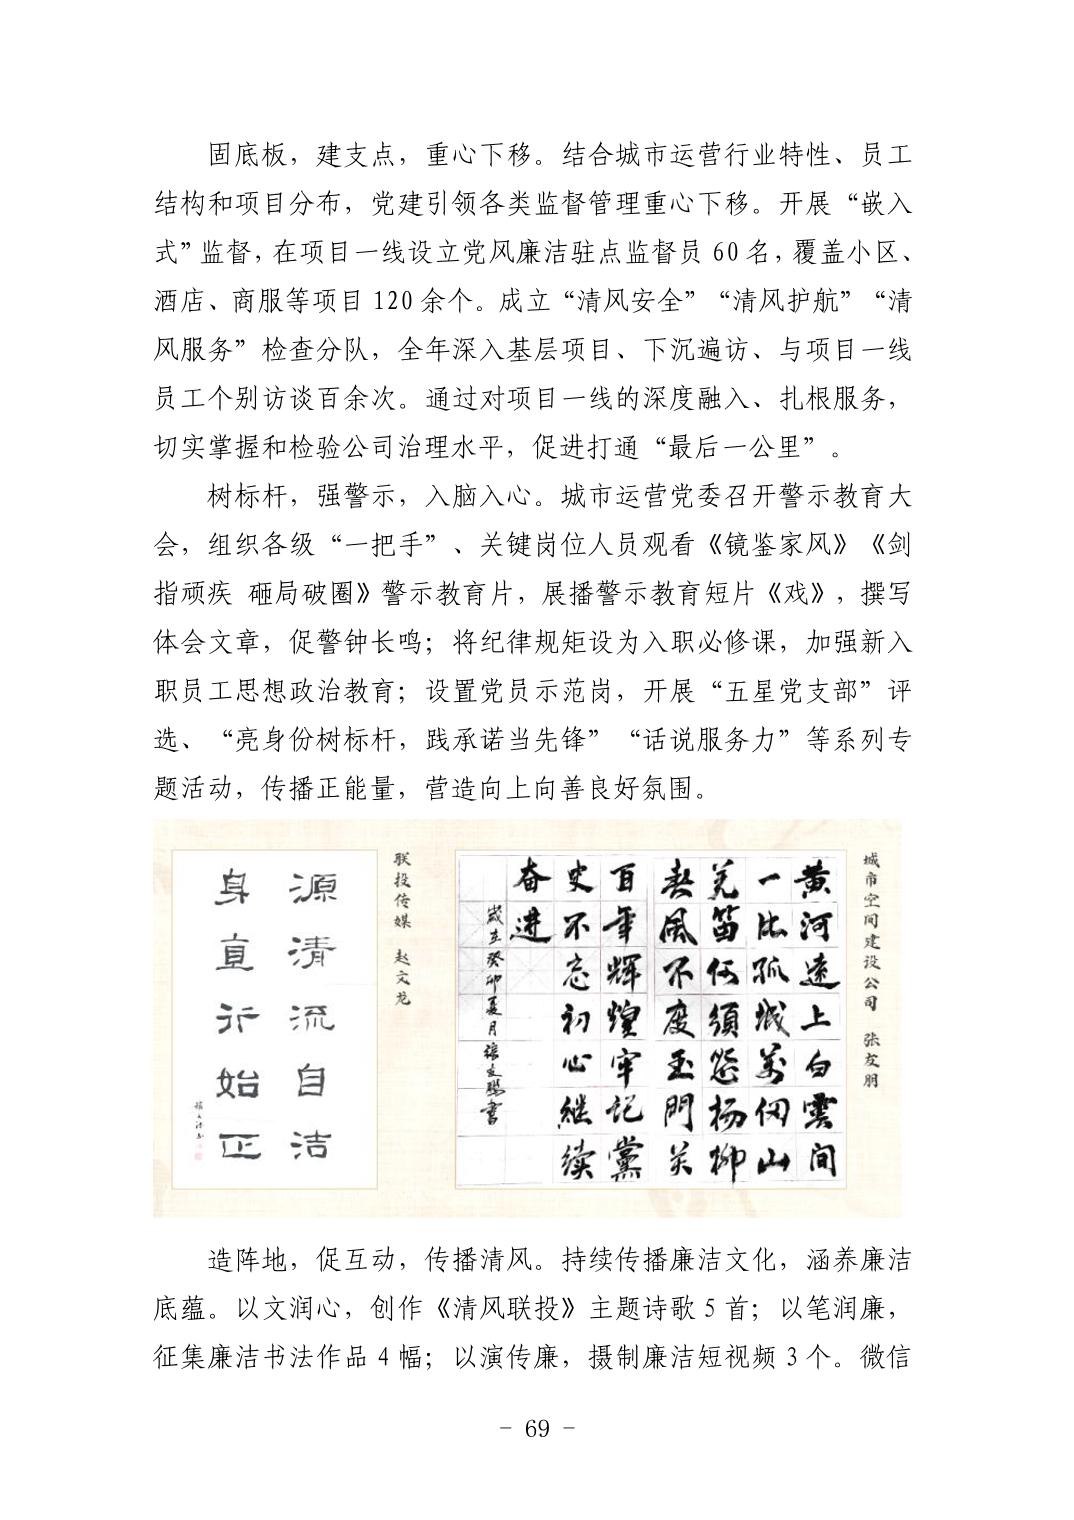 固底板，建支点，重心下移。结合城市运营行业特性、员工
结构和项目分布，党建引领各类监督管理重心下移。开展“嵌入
式”监督，在项目一线设立党风廉洁驻点监督员 60 名，覆盖小区、
酒店、商服等项目 120 余个。成立“清风安全”“清风护航”“清
风服务”检查分队，全年深入基层项目、下沉遍访、与项目一线
员工个别访谈百余次。通过对项目一线的深度融入、扎根服务，
切实掌握和检验公司治理水平，促进打通“最后一公里”。
树标杆，强警示，入脑入心。城市运营党委召开警示教育大
会，组织各级“一把手”、关键岗位人员观看《镜鉴家风》《剑
指顽疾 砸局破圈》警示教育片，展播警示教育短片《戏》，撰写
体会文章，促警钟长鸣；将纪律规矩设为入职必修课，加强新入
职员工思想政治教育；设置党员示范岗，开展“五星党支部”评
选、“亮身份树标杆，践承诺当先锋”“话说服务力”等系列专
题活动，传播正能量，营造向上向善良好氛围。
源清流自洁
身直行始正
联投传媒 赵文龙
黄河远上白雲间
一片孤城万仞山
羌笛何須怨杨柳
春風不度玉門关
百年辉煌牢记黨
史不忘初心继续
奋进
岁在癸卯夏月張友鹏書
城市空间建设公司 张友朋
造阵地，促互动，传播清风。持续传播廉洁文化，涵养廉洁
底蕴。以文润心，创作《清风联投》主题诗歌 5 首；以笔润廉，
征集廉洁书法作品 4 幅；以演传廉，摄制廉洁短视频 3 个。微信
- 69 -